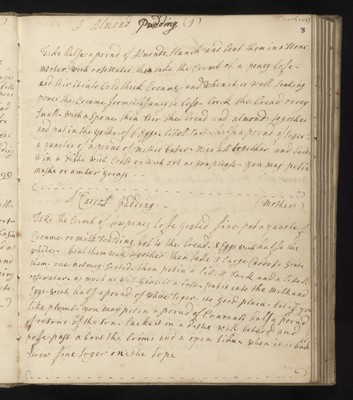 A Almond Pudding (1)
8
Take halfe a pound of Almonds blanch and beat them in a stone
morter, with rosewater, then take the Crumb of a peney lofe
and slice it into Cold thick Creame, and when it is well
power the Creame from it, breack the bread verey
small with a spone, then stir the bread and almonds together
and put in the yolks of 6 Eggs, half a pound of suger
a quarter of a pound of melted buter, mix all together and back
it in a dish with Crost or with out as you please, you may put in
muske or amber greace
A Carrot Pudding (Mother)
Take the Crumb of peney lofe grated fine, put a quarte of
Creame or milk boiling hot to the bread, 8 Eggs with half the
whites, beat them well together then take 2 large Carrots grate
them one nutmeg grated, then put in a little sack and a little
rosewater, as much as will give it a taste, put into the milk and
Eggs with half a pound of white suger, its good plain, but if you
like plombs you may put in a pound of Currants half a pound
of resons of the sun, backe it in a dish well buterd and
pufe past about the brims and a open lid, when it is back
strow fine suger on the tope